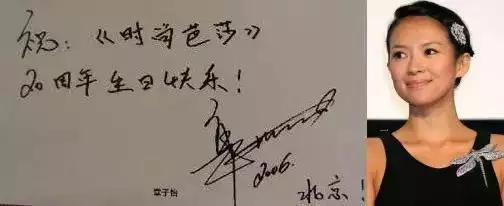 祝：《时尚芭莎》
20周年生日快乐！
章
2006.
章子怡
北京！